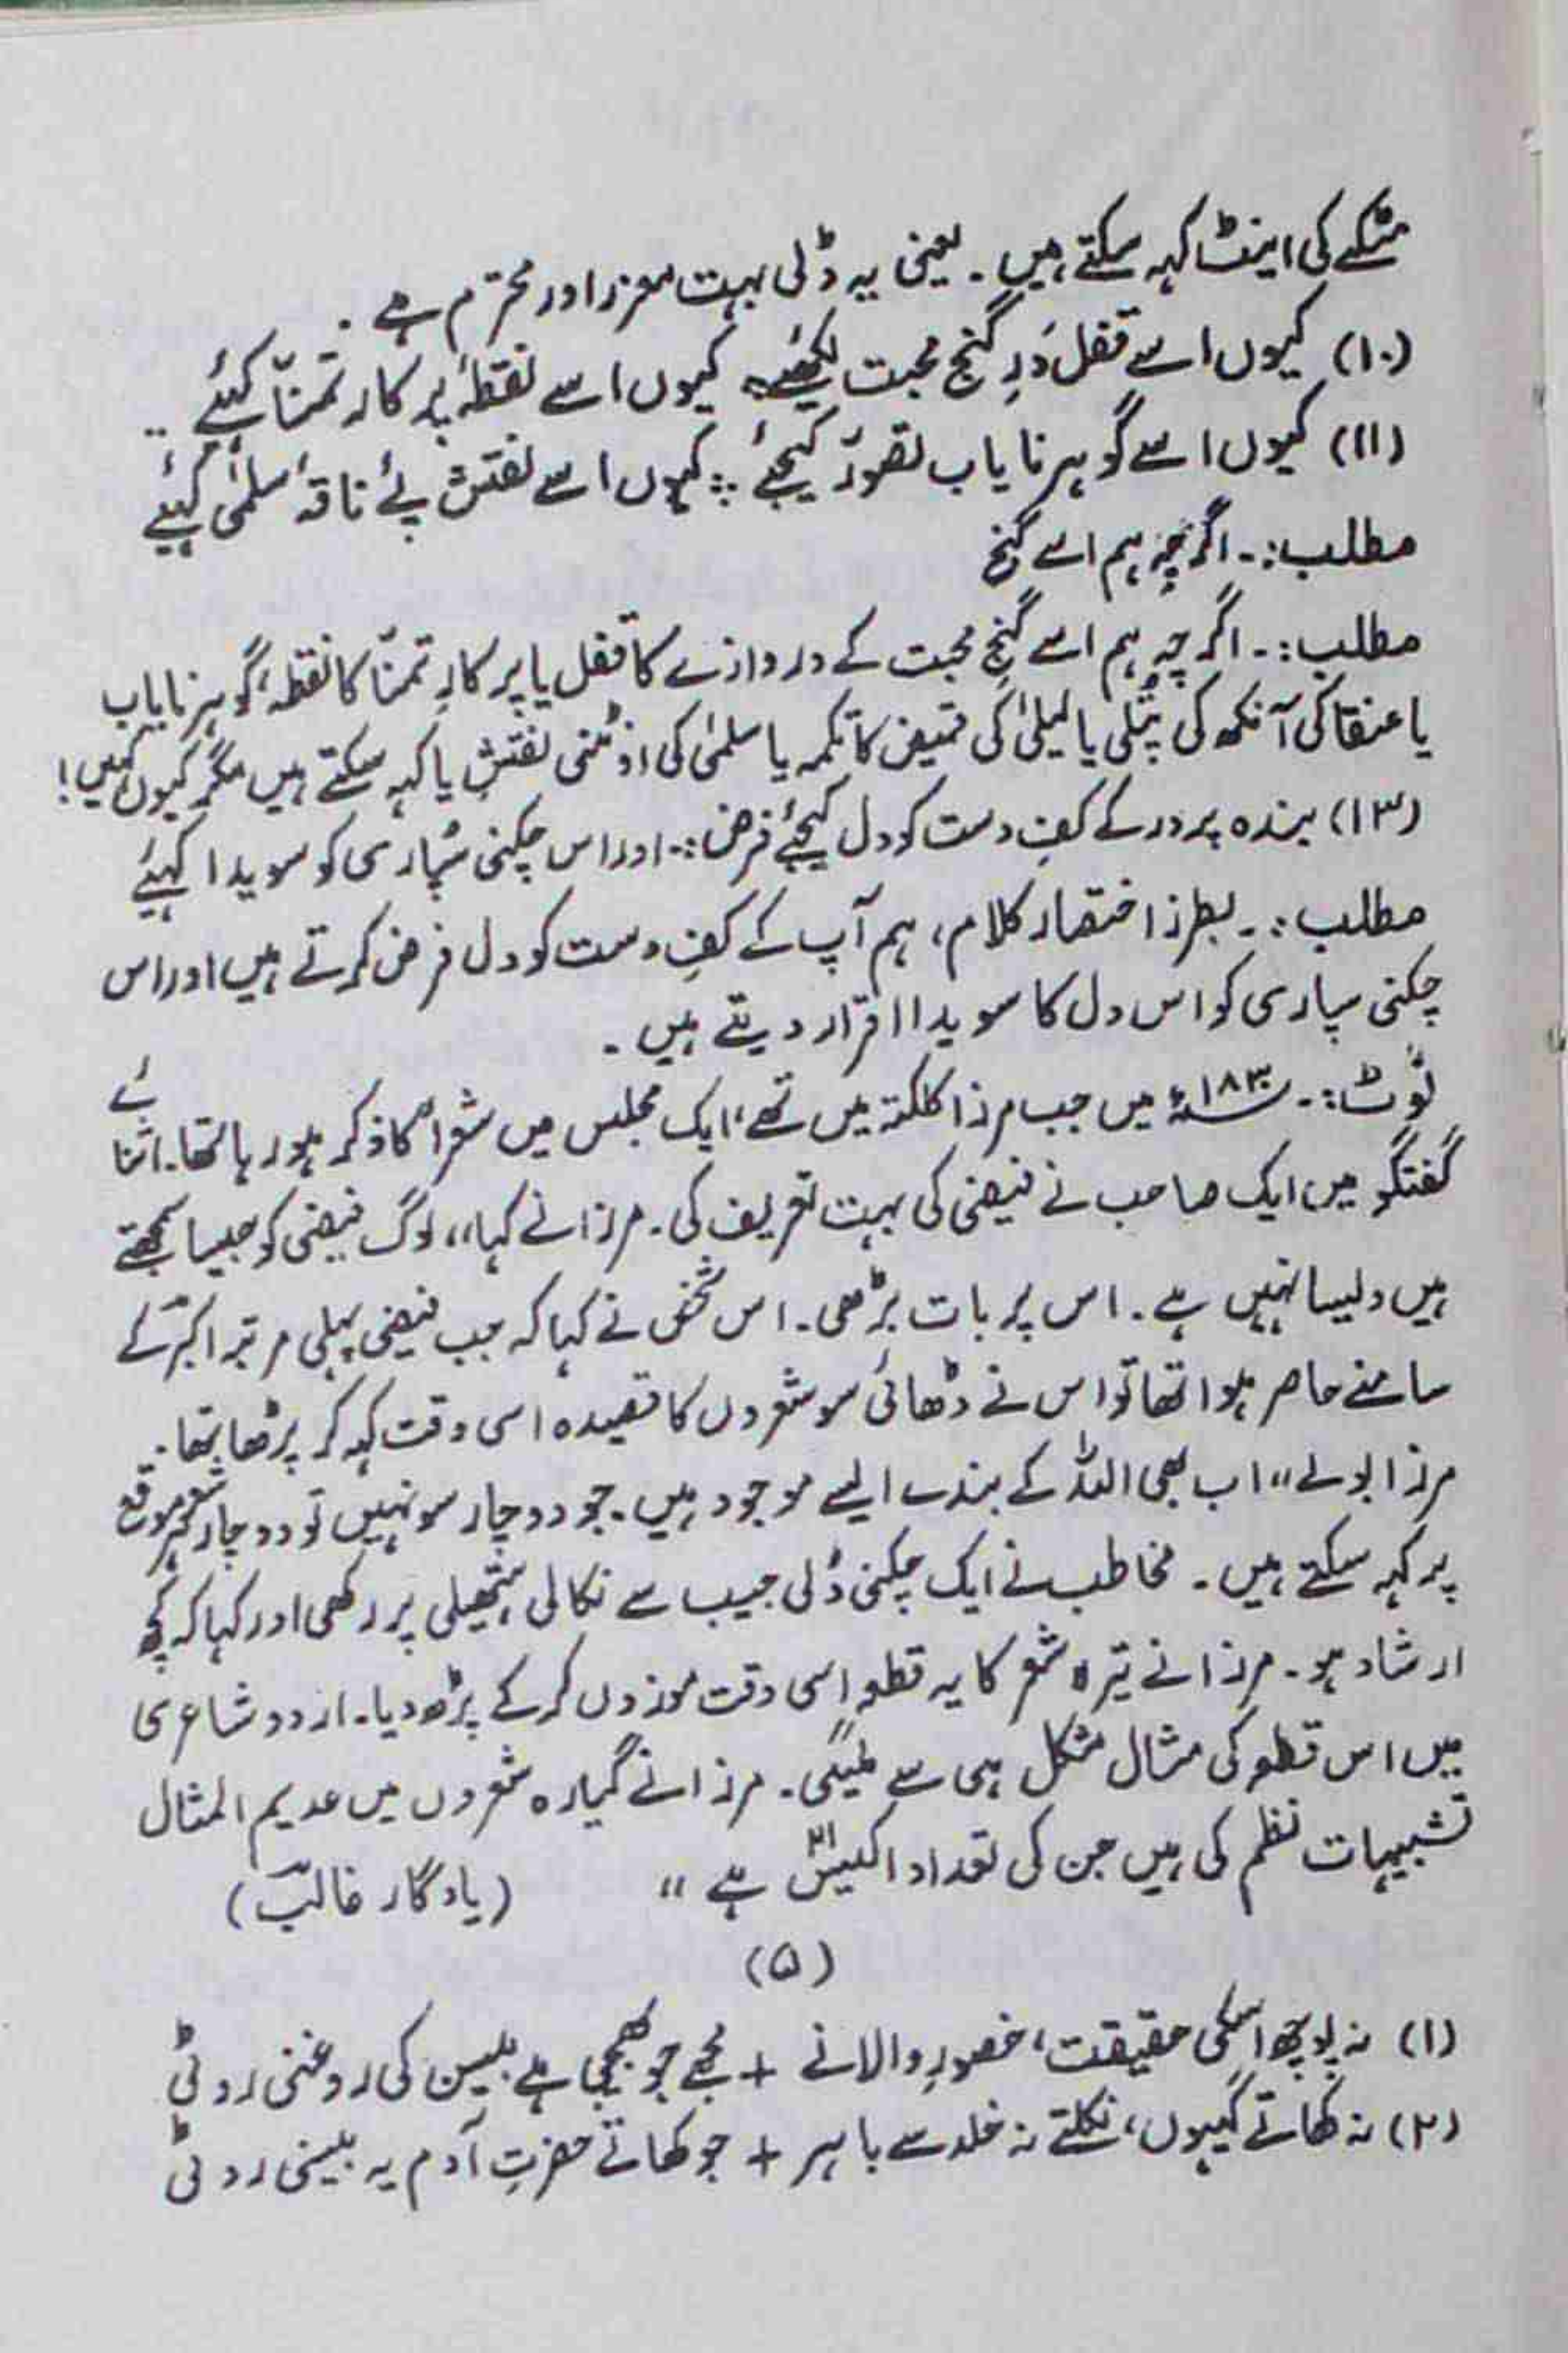 مٹکے کی اینٹ کہہ سکتے ہیں ۔ یعنی یہ ڈلی بہت معزز اور محترم ہے ۔
(۱۰) کیوں اسے قفلِ دَرِ گنج محبت لکھئے کیوں اسے نقطۂ پر کارِ تمنّا کہئے ..
(۱۱) کیوں اسے گوہر نایاب تصوّر کیجئے ؞ کیوں اسے نقش پئے ناقۂ سلمیٰ کہیئے
مطلب :۔ اگرچہ ہم اسے گنج
مطلب :۔ اگرچہ ہم اسے گنجِ محبت کے دروازے کا قفل یا پرکارِ تمنّا کا نقطہ، گوہر نایاب
یا عنقا کی آنکھ کی پتلی یا لیلیٰ کی قمیض کا تکمہ یا سلمیٰ کی اونٹنی نقشِ پا کہہ سکتے ہیں مگر کیوں کہیں!
(۱۳) بندہ پرور کے کفِ دست کو دل کیجئے فرض :۔ اور اس چکنی سُپاری کو سویدا کہیئے
مطلب :۔ بطرز اختصار کلام، ہم آپ کے کفِ دست کو دل فرض کرتے ہیں اور اس
چکنی سپاری کو اس دل کا سویدا اقرار دیتے ہیں ۔
نوٹ :۔ ۱۸۳۰ء میں جب مرزا کلکتہ میں تھے، ایک مجلس میں شعراء کا ذکر ہو رہا تھا۔ اثنائے
گفتگو میں ایک صاحب نے فیضی کی بہت تعریف کی ۔ مرزا نے کہا ،، لوگ فیضی کو جیسا سمجھتے
ہیں ویسا نہیں ہے ۔ اس پر بات بڑھی ۔ اس شخص نے کہا کہ جب فیضی پہلی مرتبہ اکبرؔ کے
سامنے حاضر ہوا تھا تو اس نے ڈھائی سو شعروں کا قصیدہ اسی وقت کہہ کر پڑھا تھا ۔
مرزا بولے ،، اب بھی اللہ کے بندے ایسے موجود ہیں ۔ جو دو چار سو نہیں تو دو چار شعر ہر موقع
پر کہہ سکتے ہیں ۔ مخاطب نے ایک چکنی ڈلی جیب سے نکالی ہتھیلی پر رکھی اور کہا کہ کچھ
ارشاد ہو ۔ مرزا نے تیرہ شعر کا یہ قطعہ اسی وقت موزوں کر کے پڑھ دیا ۔ اردو شاعری
میں اس قطعہ کی مثال مشکل ہی سے ملیگی ۔ مرزا نے گیارہ شعروں میں عدیم المثال
تشبیہات نظم کی ہیں جن کی تعداد اکیس ۲۱ ہے ،، (یادگار غالبؔ)
(۵)
(۱) نہ پوچھ اسکی حقیقت، حضورِ والا نے + مجھے جو بھیجی ہے بیسن کی روغنی روٹی
(۲) نہ کھاتے گیہوں، نکلتے نہ خلد سے باہر + جو کھاتے حضرتِ آدم یہ بیسنی روٹی